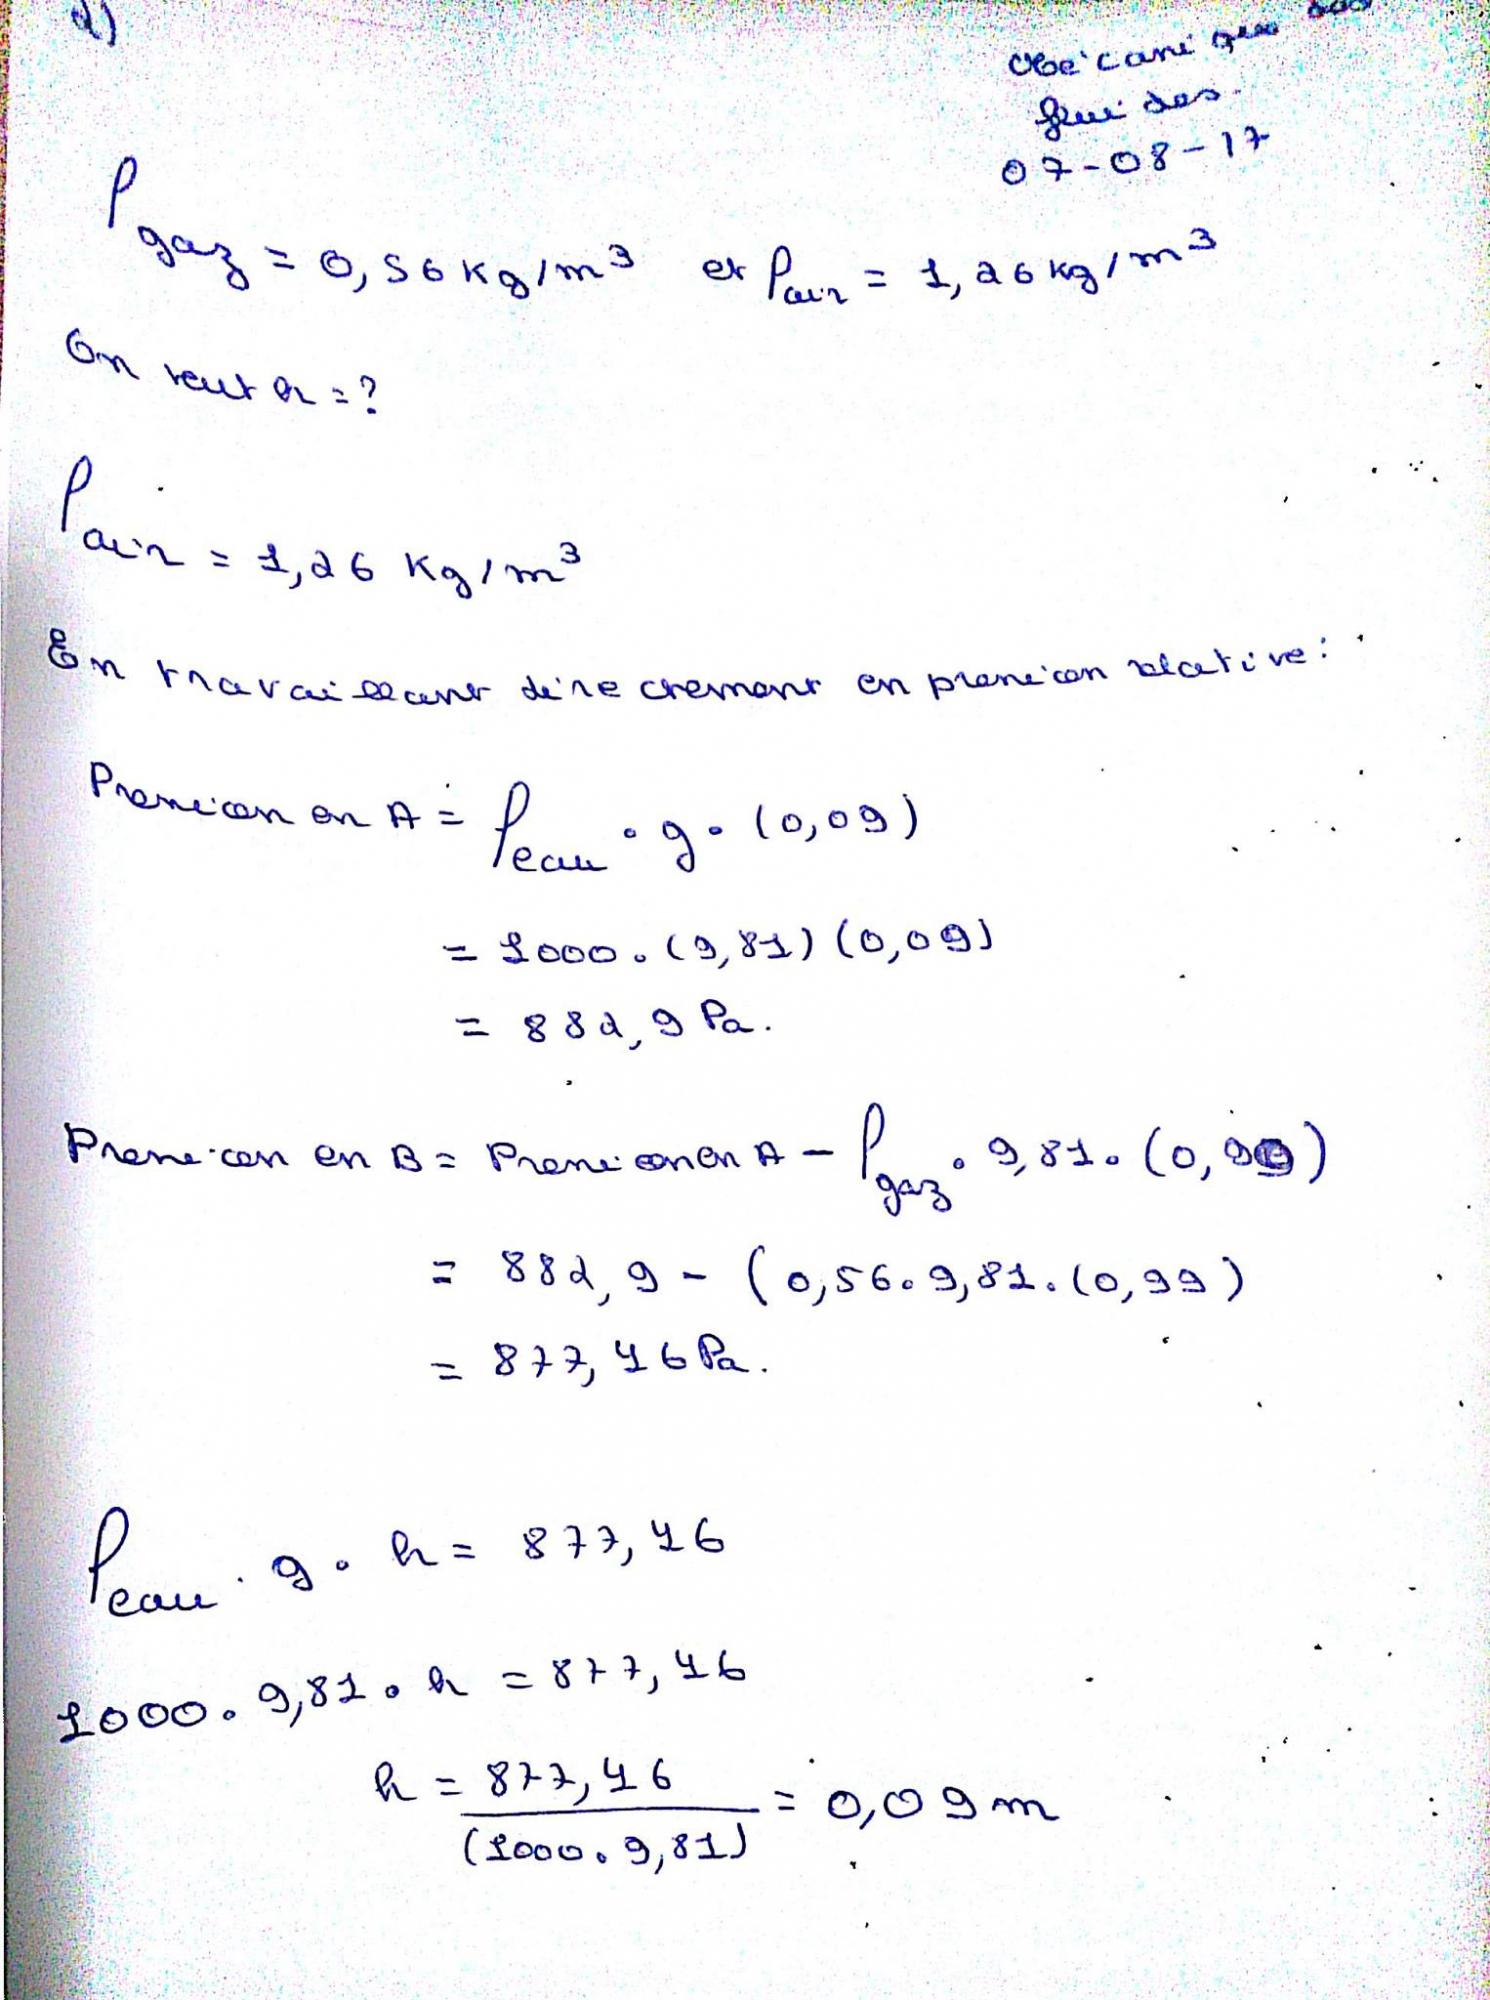 2)
Mécanique des
fluides
07-08-17
ρgaz = 0,56 Kg/m³ et ρair = 1,26 kg/m³
On veut h = ?
ρair = 1,26 Kg/m³
En travaillant directement en pression relative :
Pression en A = ρeau · g · (0,09)
= 1000 · (9,81) (0,09)
= 882,9 Pa.
Pression en B = Pression en A - ρgaz · 9,81 · (0,99)
= 882,9 - (0,56 · 9,81 · (0,99)
= 877,46 Pa.
ρeau · g · h = 877,46
1000 · 9,81 · h = 877,46
h = 877,46 / (1000 · 9,81) = 0,09 m